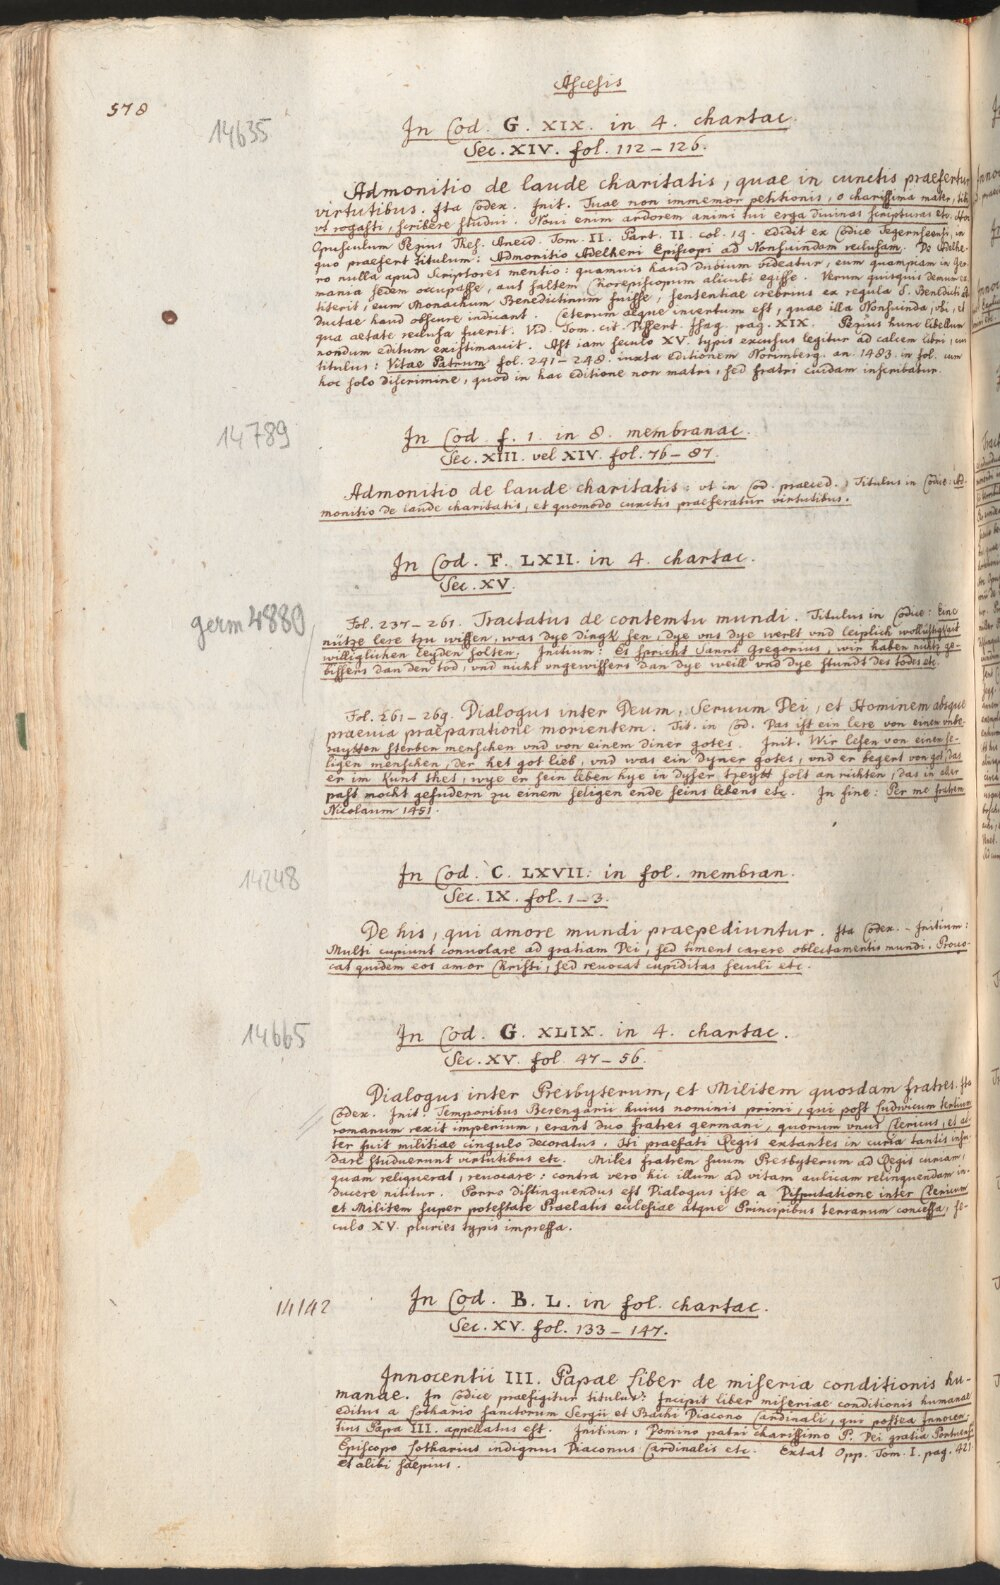 Ascesis
578
14635
In Cod. G. XIX. in 4. chartac.
Sec. XIV. fol. 112–126.
Admonitio de laude charitatis, quae in cunctis praefertur
virtutibus. Ita Codex. Init. Tuae non immemor petitionis, o charissima mater, sic
vt rogasti, scribere studui. Novi enim ardorem animi tui erga divinas scripturas etc. Hoc
Opusculum Pezius Thes. Anecd. Tom. II. Part. II. col. 19. edidit ex Codice Tegernseensi, in
quo praefert titulum: Admonitio Adelheri Episcopi ad Nonsuindam reclusam. De Adelhe-
ro nulla apud Scriptores mentio: quamuis haud dubium videatur, eum quampiam in Ger-
mania sedem occupasse, aut saltem Chorepiscopum alicubi egisse. Verum quisquis demum ex
titerit, eum Monachum Benedictinum fuisse, sententiae crebrius ex regula S. Benedicti de
ductae haud obscure indicant. Ceterum aeque incertum est, quae illa Nonsuinda, vbi, et
qua aetate reclusa fuerit. Vid. Tom. cit. Dissert. Isag. pag. XIX. Pezius hunc libellum
nondum editum existimavit. Ast iam seculo XV. typis excusus legitur ad calcem libri, cui
titulus: Vitae Patrum fol. 241–248. iuxta editionem Norimberg. an. 1483. in fol. cum
hoc solo discrimine, quod in hac editione non matri, sed fratri cuidam inscribatur.
14789
In Cod. f. 1. in 8. membranac.
Sec. XIII. vel XIV. fol. 76–87.
Admonitio de laude charitatis: vt in Cod. praeced. Titulus in Codice: Ad-
monitio de laude charitatis, et quomodo cunctis praeferatur virtutibus.
In Cod. F. LXII. in 4. chartac.
Sec. XV.
germ 4889
Fol. 237–261. Tractatus de contemtu mundi. Titulus in Codice: Eine
nütze lere tzu wissen, was dye dingk sen, dye vns dye werlt vnd leiplich wollustigkait
williglichen leyden solten. Initium: Es spricht Sannt Gregorius, wir haben nichts ge-
wissers dan den tod, vnd nicht vngewissers dan dye weill vnd dye stundt des todes etc.
Fol. 261–269. Dialogus inter Deum, Seruum Dei, et Hominem absque
praeuia praeparatione morientem. Tit. in Cod. Das ist ein lere von einem vnbe-
raytten sterben menschen vnd von einem diner gotes. Init. Wir lesen von einem se-
ligen menschen, der het got lieb, vnd was ein dyner gotes, vnd er begert von got, das
er im kunt thet, wye er sein leben hye in dyser tzeytt solt an richten, das in aller
past mocht gefudern zu einem seligen ende seins lebens etc. In fine: Per me fratrem
Nicolaum 1481.
14248
In Cod. C. LXVII. in fol. membran.
Sec. IX. fol. 1–3.
De his, qui amore mundi praepediuntur. Ita Codex. – Initium:
Multi cupiunt conuolare ad gratiam Dei, sed timent carere oblectamentis mundi. Prouo-
cat quidem eos amor Christi, sed reuocat cupiditas seculi etc.
14665
In Cod. G. XLIX. in 4. chartac.
Sec. XV. fol. 47–56.
Dialogus inter Presbyterum, et Militem quosdam fratres. Ita
Codex. Init. Temporibus Berengarii huius nominis primi, qui post Ludwicum tertium
romanum rexit imperium, erant duo fratres germani, quorum vnus Clericus, et al-
ter fuit militiae cingulo decoratus. Hi praefati Regis extantes in curia tantis insu-
dare studuerunt virtutibus etc. Miles fratrem suum Presbyterum ad Regis curiam,
quam reliquerat, reuocare: contra vero hic illum ad vitam aulicam relinquendam in-
ducere nititur. Porro distinguendus est Dialogus iste a Disputatione inter Clericum
et Militem super potestate Praelatis ecclesiae atque Principibus terrarum concessa, se-
culo XV. pluries typis impressa.
14142
In Cod. B. L. in fol. chartac.
Sec. XV. fol. 133–147.
Innocentii III. Papae Liber de miseria conditionis hu-
manae. In Codice praefigitur titulus: Incipit liber miseriae conditionis humanae
editus a Lothario sanctorum Sergii et Bachi Diacono Cardinali, qui postea Innocen-
tius Papa III. appellatus est. Initium: Domino patri charissimo P. Dei gratia Portuensi
Episcopo Lotharius indignus Diaconus Cardinalis etc. Extat Opp. Tom. I. pag. 421
et alibi saepius.